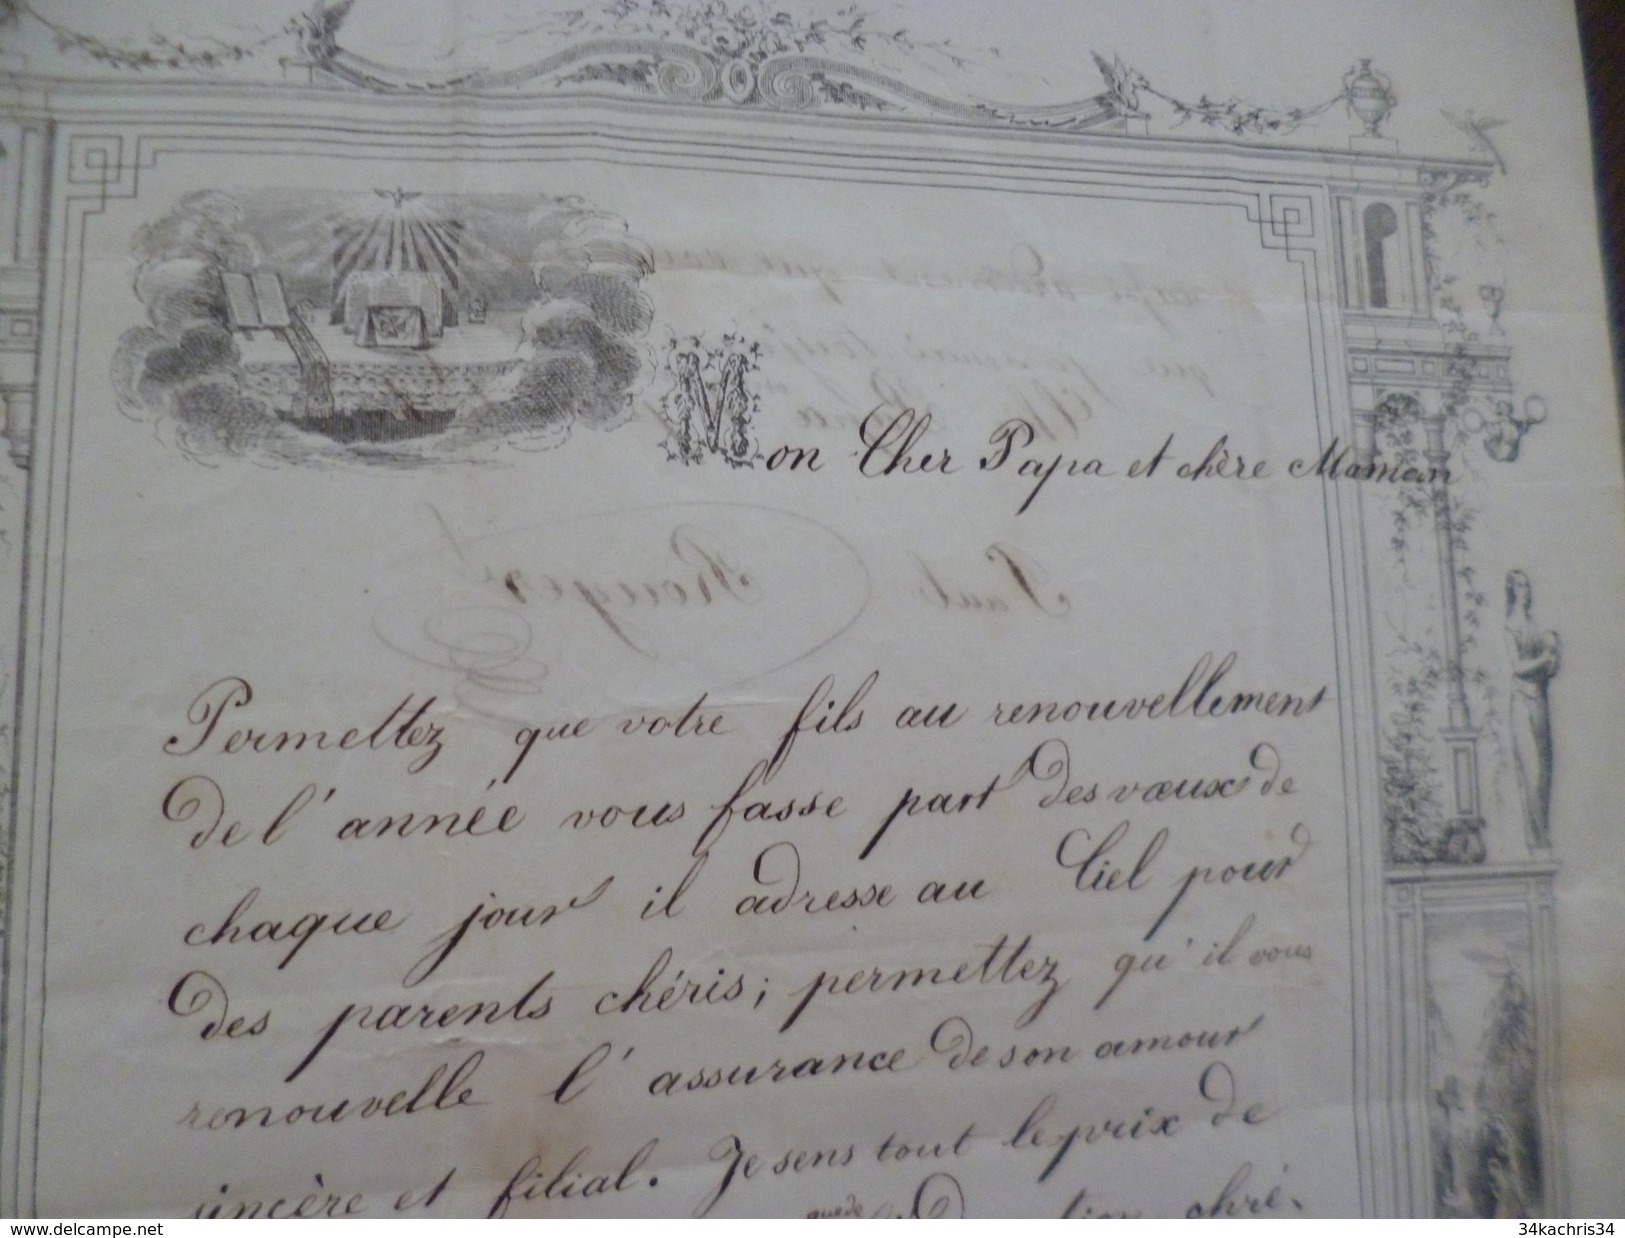 Mon Cher Papa et chère Maman
Permettez que votre fils au renouvellement
de l'année vous fasse part des vœux de
chaque jour il adresse au Ciel pour
des parents chéris; permettez qu'il vous
renouvelle l'assurance de son amour
sincère et filial. Je sens tout le prix de
que de
tion chré-
Paul Rouyer
www.delcampe.net
34kachris34